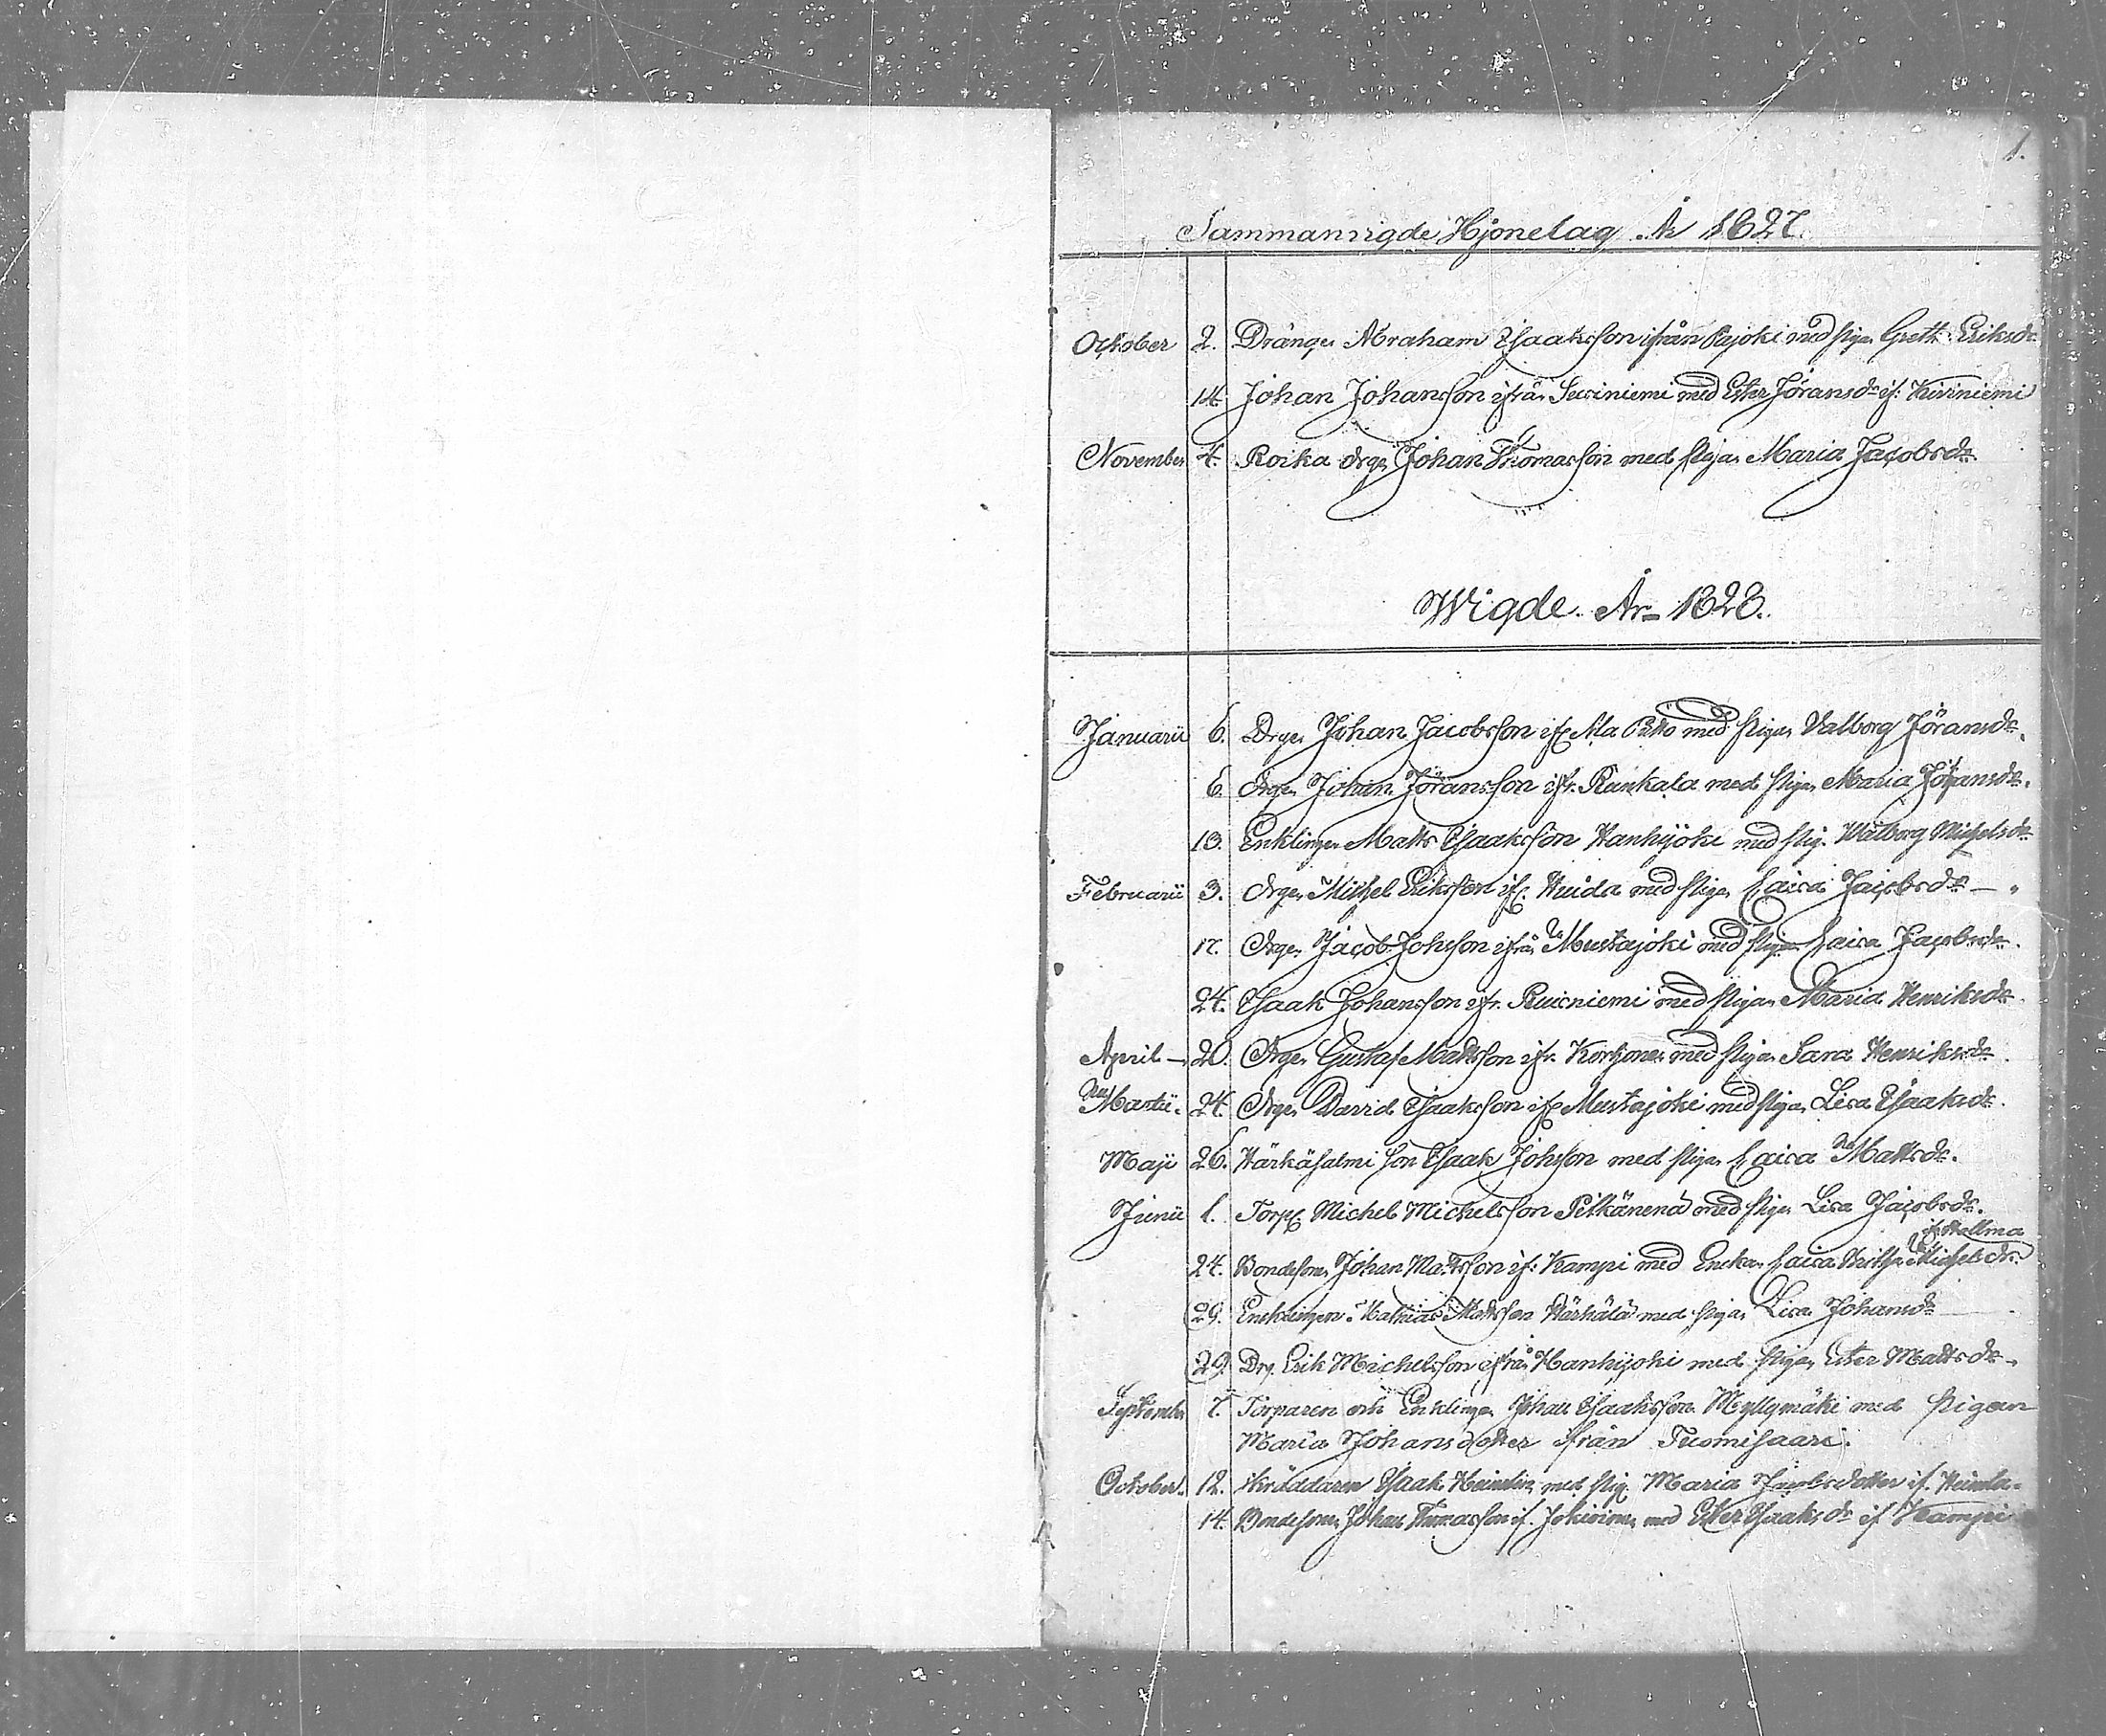 1.
Sammanvigde Hjonelag År 1827.
October 2. Drängen Abraham Isaaksson ifrån Pajoki med Pigan Greth. Eriksdr
14. Johan Johansson ifrån Susiniemi med Ester Jöransdr if: Kiviniemi
November 4. Roika drgn Johan Thomasson med Pigan Maria Jacobsdr
Wigde År 1828.
Januarii 6. Drgn Johan Jacobsson ifr Ala med Pigan Valborg Jöransdr.
6. drgn Johan Jöransson ifr. Rankala med Pigan Maria Jöransdr.
13. Enklingen Matts Isaaksson Hanhijoki med Pig. Walborg Michelsdr
Februarii 3. drgn Michel Eriksson ifr. Huida med Pigan Caisa Jacobsdr
17. drgn Jacob Johsson ifrån Mustajoki med Pigan Caisa Jacobsdr.
24. Isaak Johansson ifr. Ruisniemi med Pigan Maria Henriksdr.
April 20. drgn Gustaf Mattsson ifr. med Pigan Sara Henriksdr.
Martii. 24. drgn David Isaaksson ifr Mustajoki med Pigan Lisa Isaaksdr.
Maji 26. Härkäsalmi son Isaak Johsson med Pigan Caisa Mattsdr.
Junii 1. Torp Michel Michelsson Pitkänena med Pigan Lisa Jacobsdr.
if Hellma
24. Bondeson Johan Mattsson if: Kampi med Enckan Caisa Michelsdr.
29. Encklingen Mathias Mattsson Härkälä med Pigan Lisa Johansdr
29. Drg. Erik Michelsson ifrån Hanhijoki med Pigan Ester Mattsdr.
Septembr 7. Torparen och Enklingen Johan Isaaksson Myllymäki med Pigan
Maria Johansdotter ifrån Tuomisaari.
October. 12. Skräddaren Isaak Heimlin med Pig Maria Jacobsdotter if. Heimla.
14. Bondeson Johan Thomasson if. med Ester Isaaksdr if Kampi